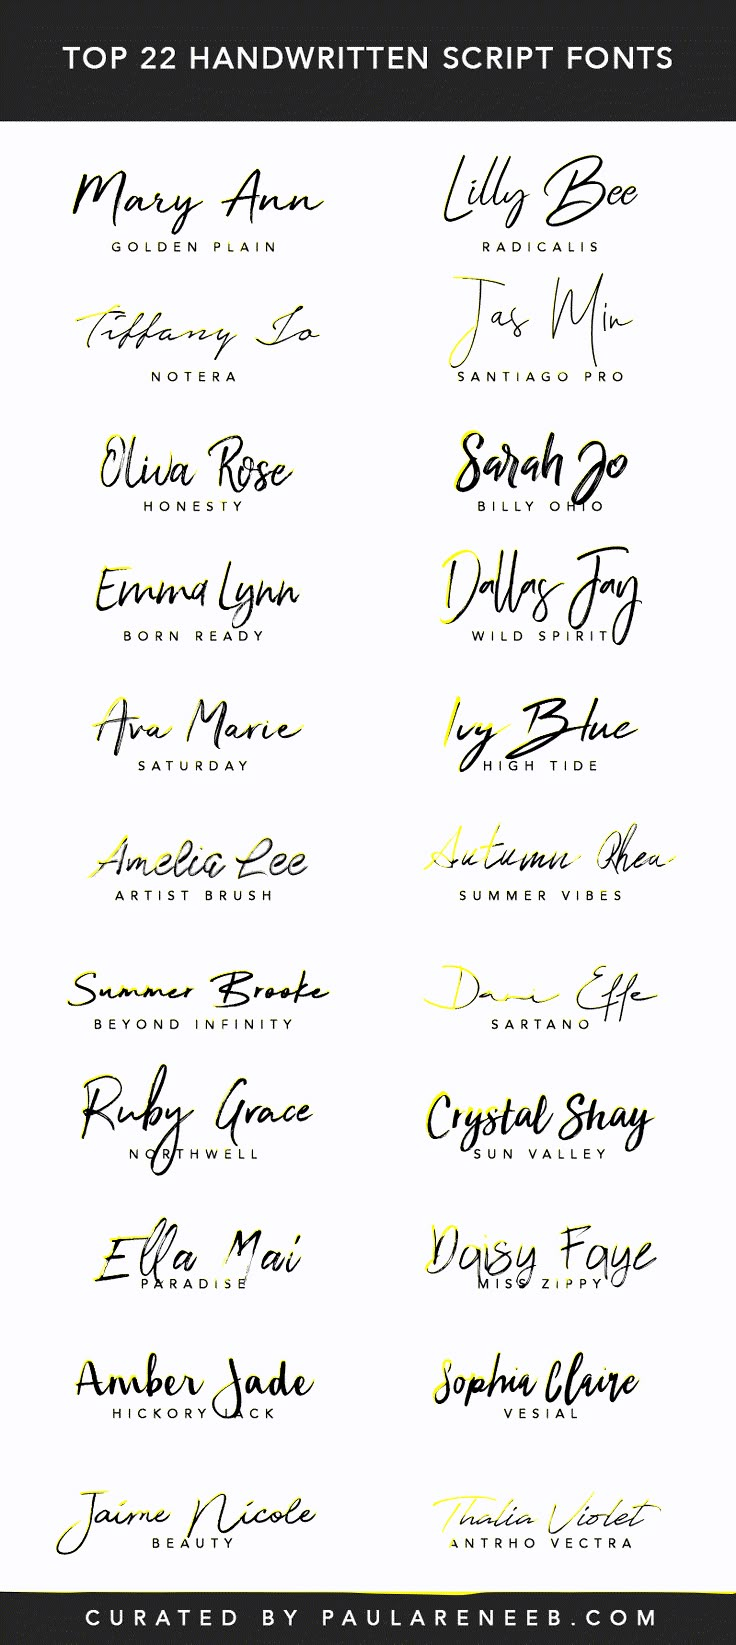 TOP 22 HANDWRITTEN SCRIPT FONTS
Mary Ann
GOLDEN PLAIN
Lilly Bee
RADICALIS
Tiffany Jo
NOTERA
Jas Min
SANTIAGO PRO
Oliva Rose
HONESTY
Sarah Jo
BILLY OHIO
Emma Lynn
BORN READY
Dallas Jay
WILD SPIRIT
Ava Marie
SATURDAY
Ivy Blue
HIGH TIDE
Amelia Lee
ARTIST BRUSH
Autumn Rhea
SUMMER VIBES
Summer Brooke
BEYOND INFINITY
Dani Effe
SARTANO
Ruby Grace
NORTHWELL
Crystal Shay
SUN VALLEY
Ella Mai
PARADISE
Daisy Faye
MISS ZIPPY
Amber Jade
HICKORY JACK
Sophia Claire
VESIAL
Jaime Nicole
BEAUTY
Thalia Violet
ANTRHO VECTRA
CURATED BY PAULARENEEB.COM